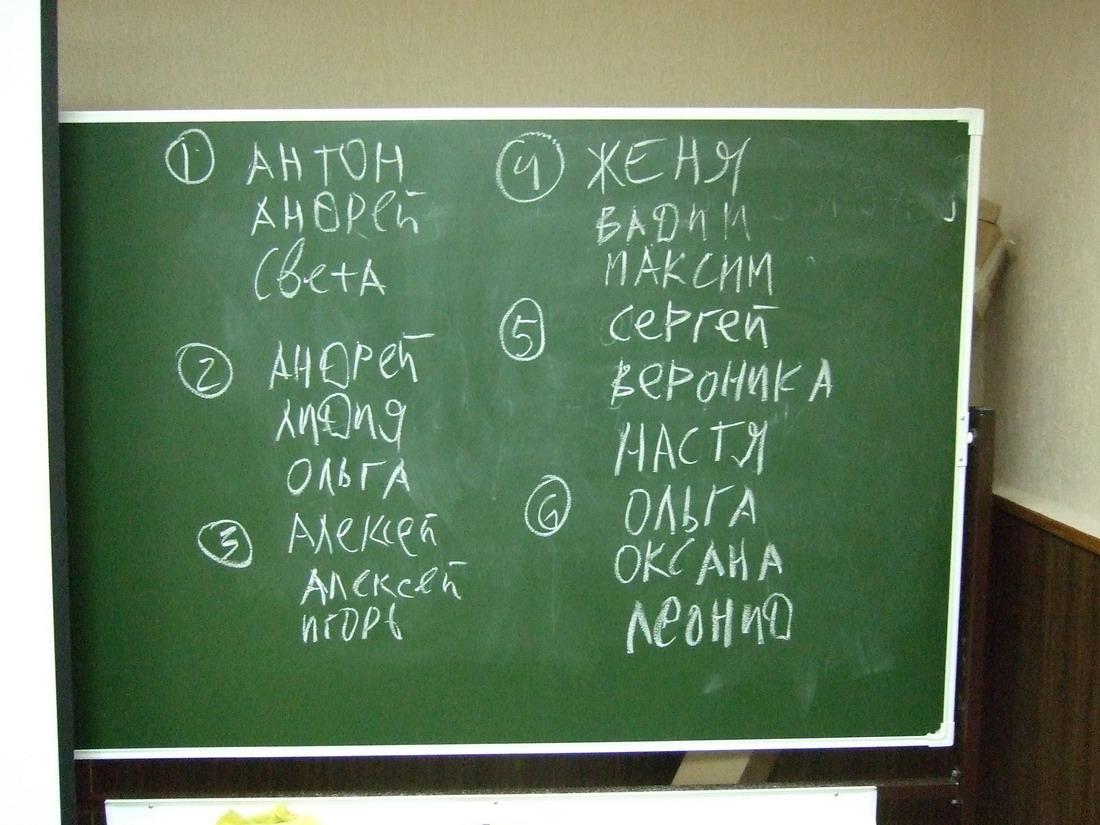 1 АНТОН
АНДРЕЙ
СВЕТА
2 АНДРЕЙ
ЛИДИЯ
ОЛЬГА
3 АЛЕКСЕЙ
АЛЕКСЕЙ
ИГОРЬ
4 ЖЕНЯ
ВАДИМ
МАКСИМ
5 СЕРГЕЙ
ВЕРОНИКА
НАСТЯ
6 ОЛЬГА
ОКСАНА
ЛЕОНИД